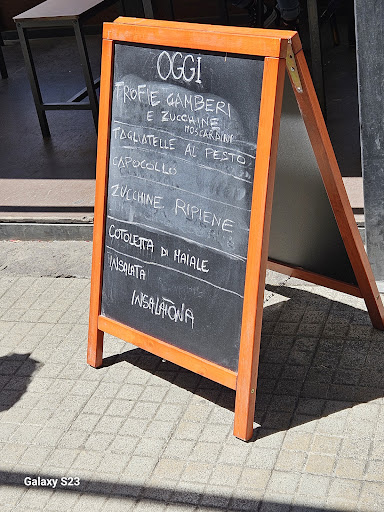 OGGI
TROFIE GAMBERI
E ZUCCHINE
MOSCARDINI
TAGLIATELLE AL PESTO
CAPOCOLLO
ZUCCHINE RIPIENE
COTOLETTA DI MAIALE
INSALATA
INSALATONA
Galaxy S23